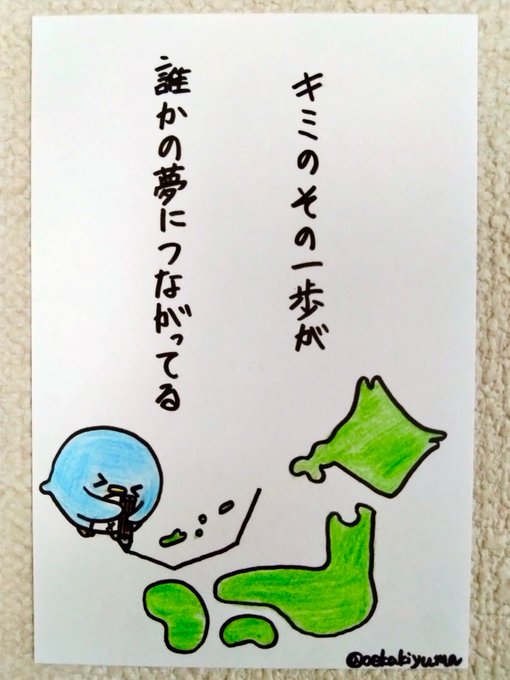 キミのその一歩が
誰かの夢につながってる
@oekakiyuma